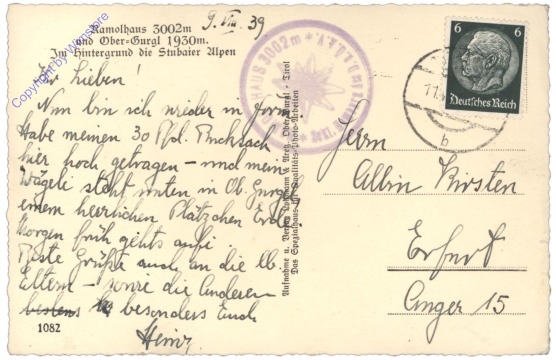 Ramolhaus 3002m
und Ober-Gurgl 1930m.
Im Hintergrund die Stubaier Alpen
9. VIII 39
Copyright by Wanstore
Ihr Lieben!
Nun bin ich wieder in Form
Habe meinen 30 Pfd. Rucksack
hier hoch getragen – und mein
Wägeli steht unten in Ob. Gurgl
einem herrlichen Plätzchen Erde
Morgen früh gehts
Beste Grüße auch an die lb.
Eltern – sowie die Anderen
bestens besonders Euch
Heinz
1082
HAUS 3002m
Aufnahme u. Verlag
Ober-Gurgl - Tirol
Das Spezialhaus für Qualitäts-Photo-Arbeiten
6 6
Deutsches Reich
11.
b
Herrn
Albin Kirsten
Erfurt
Anger 15